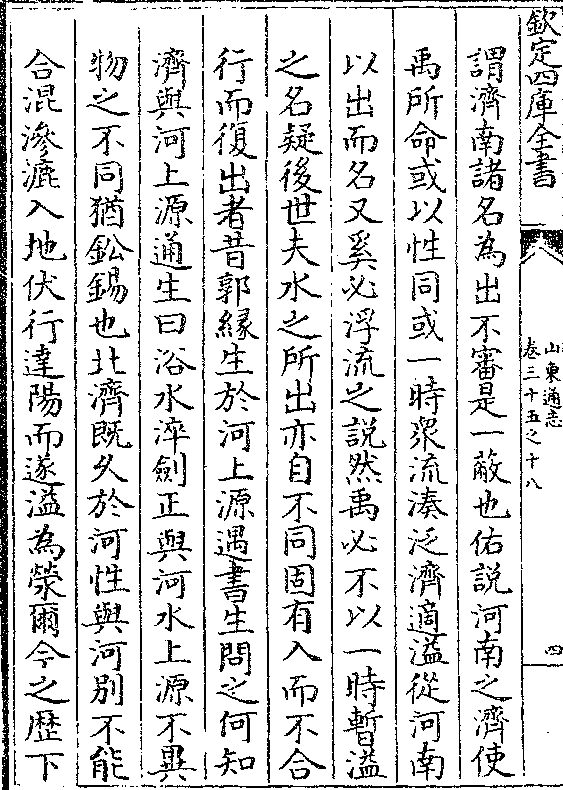 欽定四庫全書
山東通志
卷三十五之十八
四
謂濟南諸名為出不審是一蔽也佑說河南之濟使
禹所命或以性同或一時衆流湊泛濟適溢從河南
以出而名又奚必浮流之説然禹必不以一時暫溢
之名疑後世夫水之所出亦自不同固有入而不合
行而復出者昔郭緣生於河上源遇書生問之何知
濟與河上源通生曰浴水淬劍正與河水上源不異
物之不同猶鈆錫也北濟既久於河性與河别不能
合混滲漉入地伏行達陽而遂溢為滎爾今之歴下